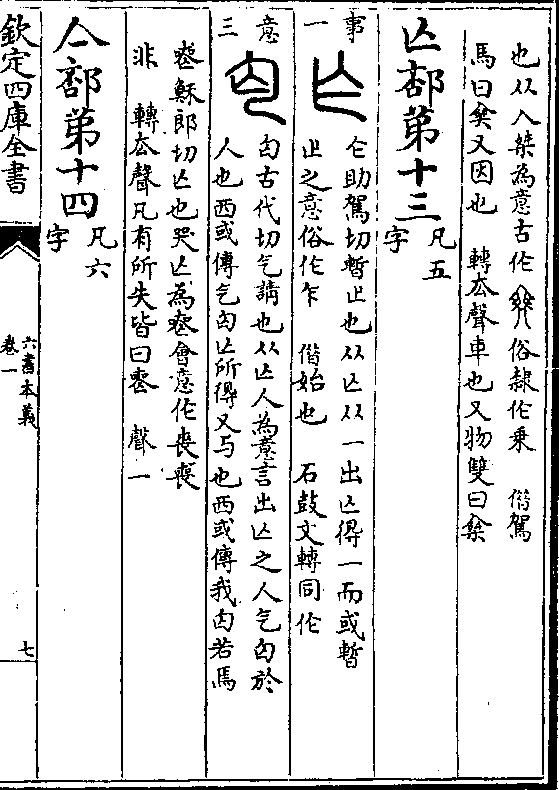 也从入桀為意古作𠅞俗隸作乗　偕駕
馬曰椉又因也　轉厺聲車也又物雙曰椉
亾部第十三　凡五字
事一
亾
仩助駕切暫止也从亾从一出亾得一而或暫
止之意俗作乍　偕始也　石鼓文轉同作
意三
匃古代切气請也从亾人為意言出亾之人气匃於
人也西或傳气匃亾所得又与也西或傳我匃若馬
䘮穌郎切亾也哭亾為䘮會意作喪䘮
非　轉厺聲凡有所失皆曰䘮　聲一
亼部第十四　凡六字
欽定四庫全書
六書本義
卷一
七